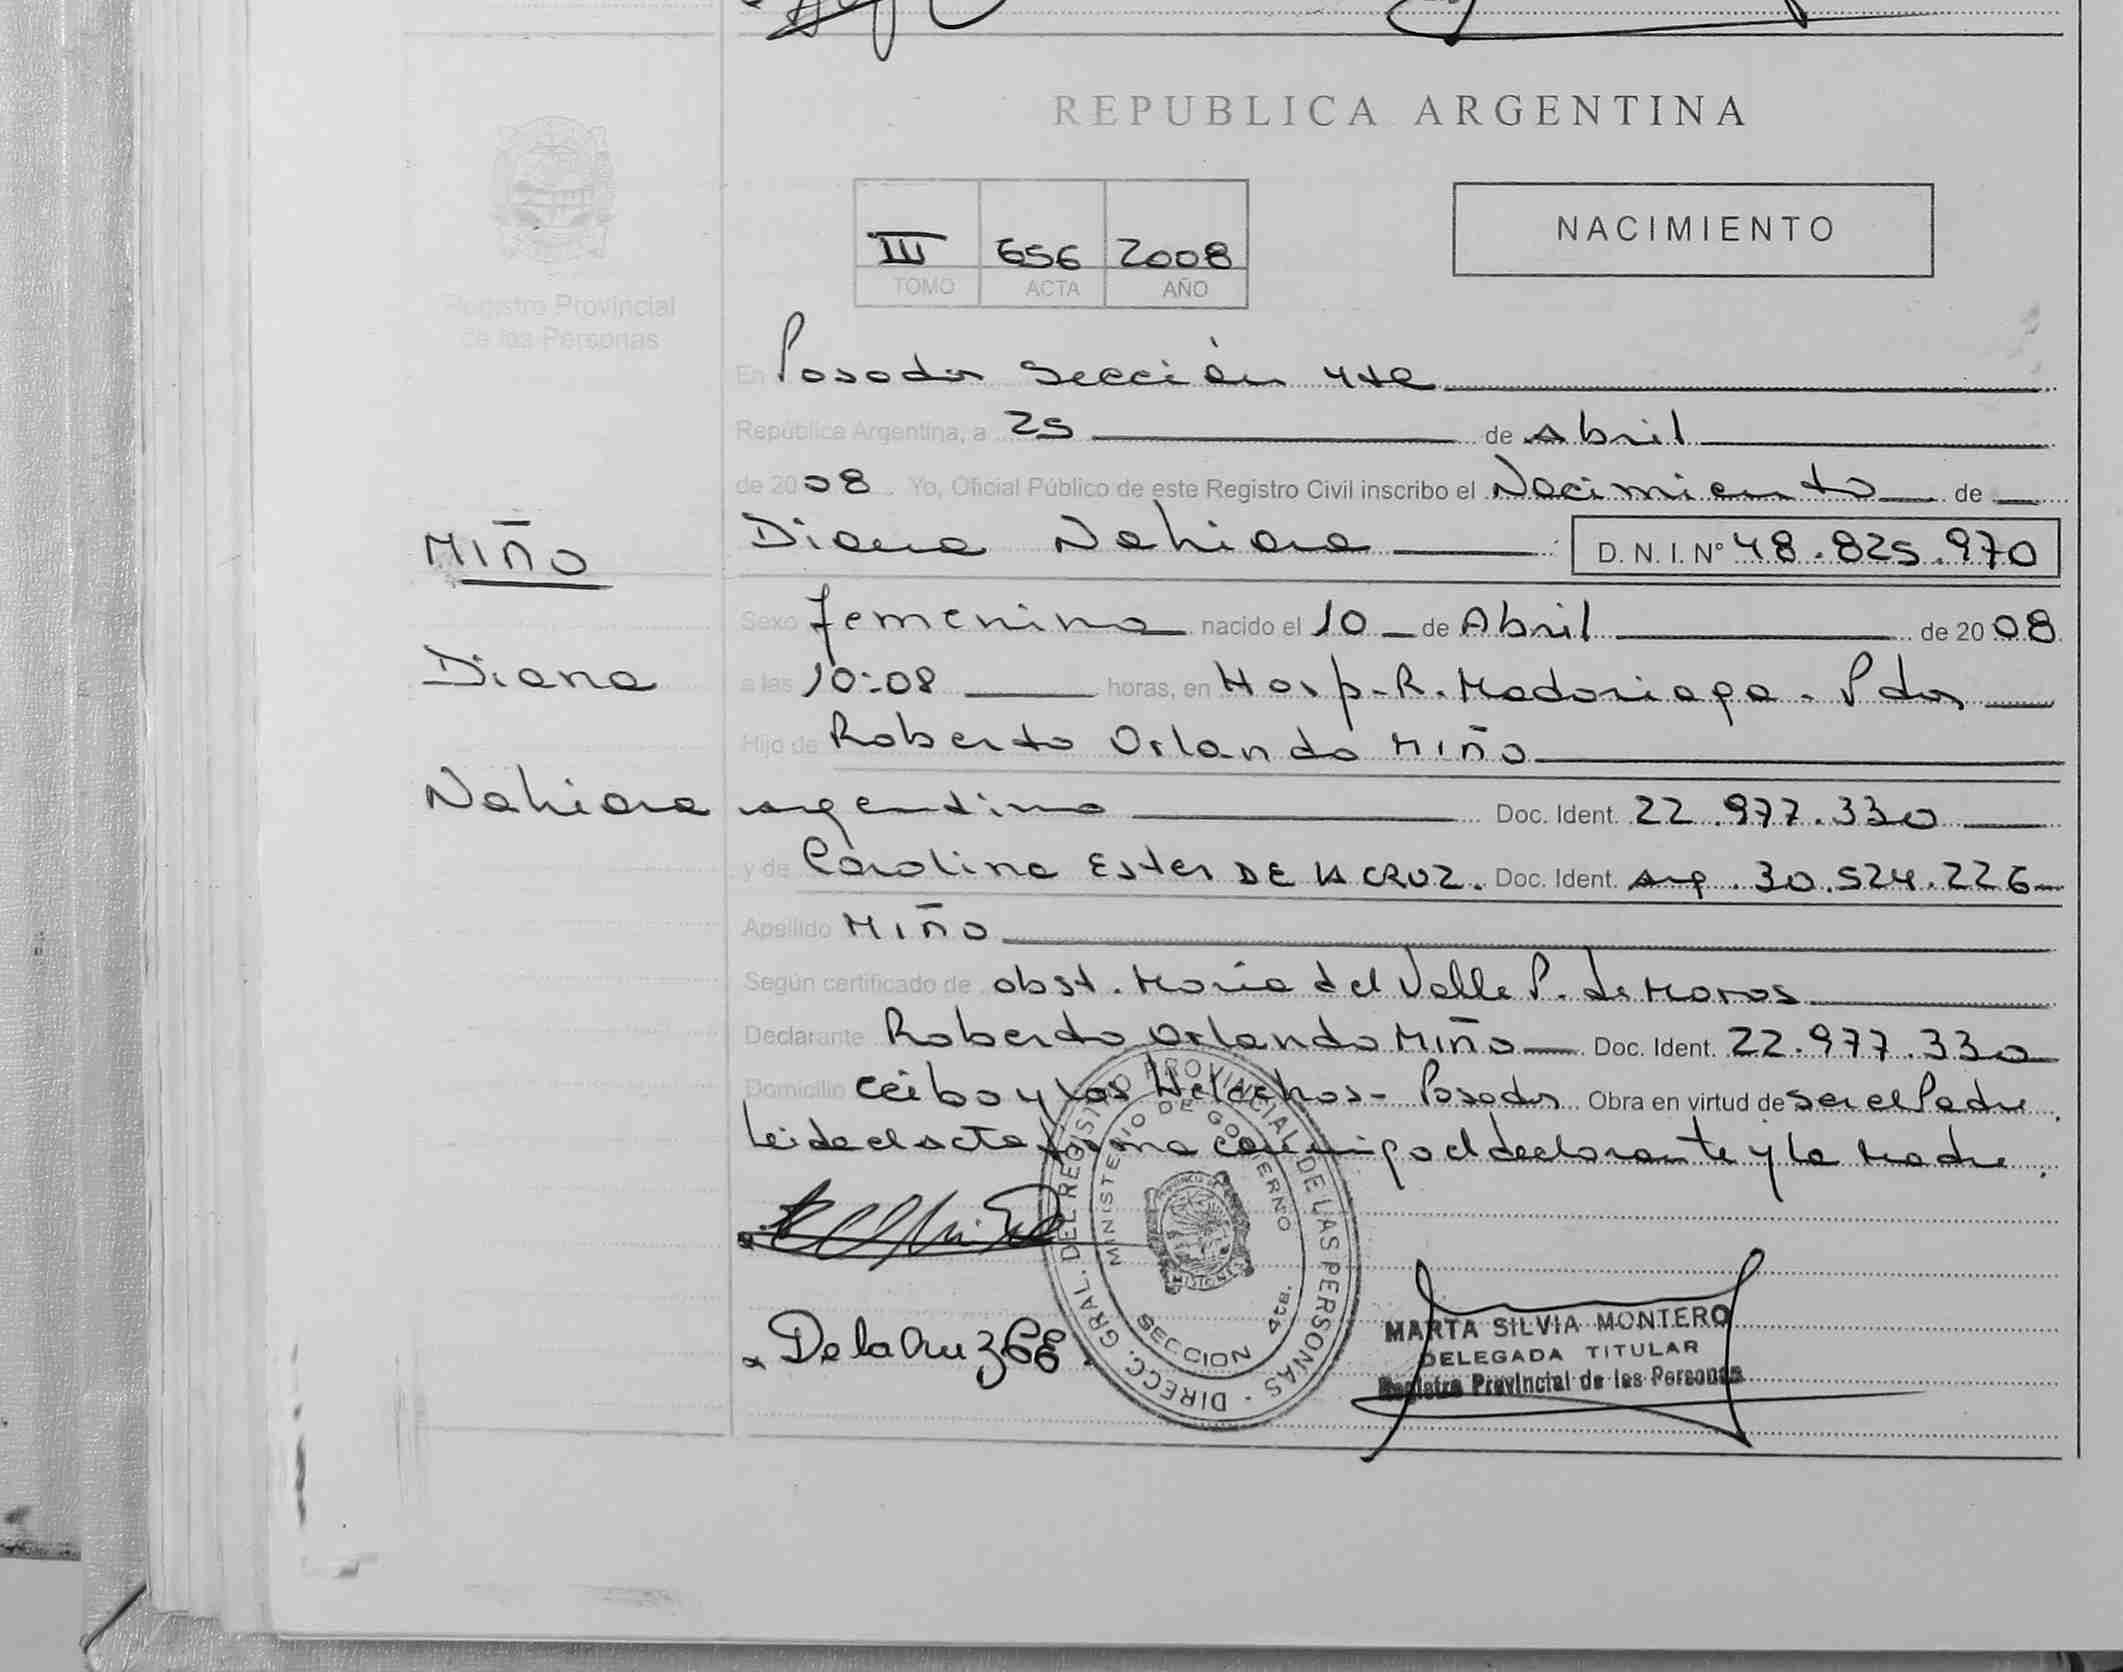 REPUBLICA ARGENTINA
NACIMIENTO
III 656 2008
TOMO ACTA AÑO
Registro Provincial
de las Personas
En Posadas Sección 4ta
República Argentina, a 25 de Abril
de 2008. Yo, Oficial Público de este Registro Civil inscribo el Nacimiento de
MIÑO
Diana Nahiara D. N. I. Nº 48.825.970
Sexo femenino nacido el 10 de Abril de 2008
Diana
a las 10:08 horas, en Hosp. R. Madariaga. Pdas
Hijo de Roberto Orlando MIÑO
Nahiara
argentino Doc. Ident. 22.977.330
y de Carolina Ester DE LA CRUZ. Doc. Ident. arg. 30.524.226
Apellido MIÑO
Según certificado de obst. María del Valle P. de
Declarante Roberto Orlando MIÑO Doc. Ident. 22.977.330
Domicilio Ceibo y Los Helechos - Posadas Obra en virtud de ser el Padre.
Leída el acta firma conmigo el declarante y la Madre.
DIRECC. GRAL. DEL REGISTRO PROVINCIAL DE LAS PERSONAS
MINISTERIO DE GOBIERNO
PROVINCIA DE MISIONES
SECCION 4ta.
De la Cruz C E
MARTA SILVIA MONTERO
DELEGADA TITULAR
Registro Provincial de las Personas